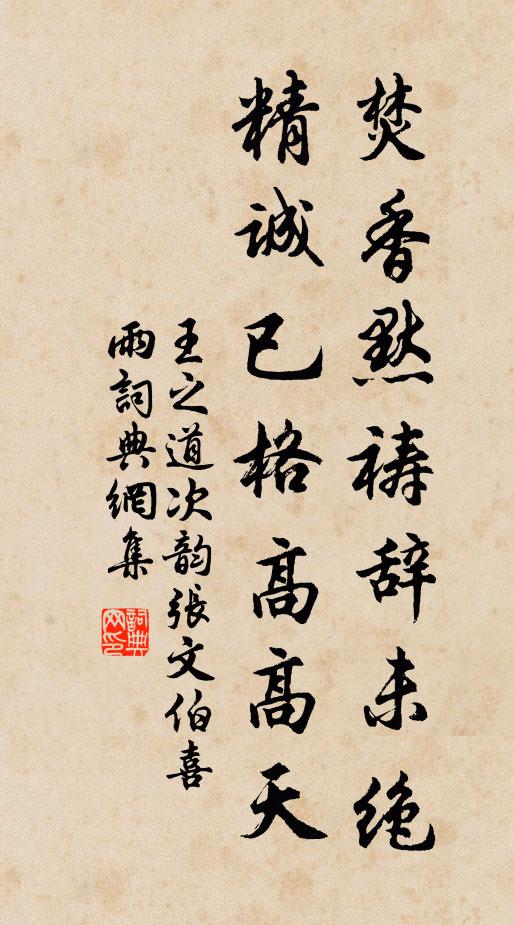 焚香默祷辞未绝
精诚已格高高天
王之道次韵張文伯喜
雨詞典網集
詞典网印